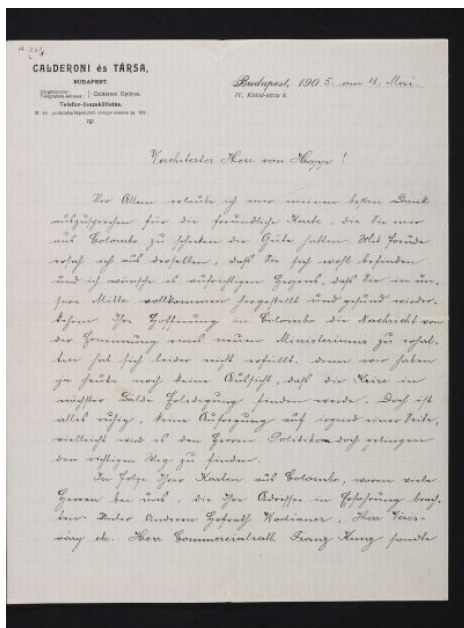 CALDERONI és TÁRSA,
BUDAPEST.
Telegramm-Adresse: Calderoni Optikus.
Telefon-összeköttetés.
Budapest, 1905. am 18. Mai.
IV., Kishid-utcza 8.
Verehrtester Herr von Hopp!
Vor Allem erlaube ich mir meinen besten Dank
auszusprechen für die freundliche Karte, die Sie mir
aus Colombo zu schicken die Güte hatten. Mit Freude
ersah ich aus derselben, daß Sie sich wohl befinden
und ich wünsche es aufrichtigen Herzens, daß Sie in un-
sere Mitte vollkommen hergestellt und gesund wieder-
kehren. Ihre Hoffnung in Colombo die Nachricht von
der Ernennung eines neuen Ministeriums zu erhal-
ten hat sich leider nicht erfüllt, denn wir haben
ja heute noch keine Aussicht, daß die Krise in
nächster Bälde Erledigung finden werde. Doch ist
alles ruhig, keine Aufregung auf irgend einer Seite,
vielleicht wird es den Herren Politikern doch gelingen
den richtigen Weg zu finden.
In Folge Ihrer Karten aus Colombo, waren viele
Herren bei uns, die Ihre Adresse in Erfahrung brach-
ten. Unter Anderen Hofrath Wodianer, Herr Vörös-
váry etc. Herr Commercialrath Franz Kunz sandte